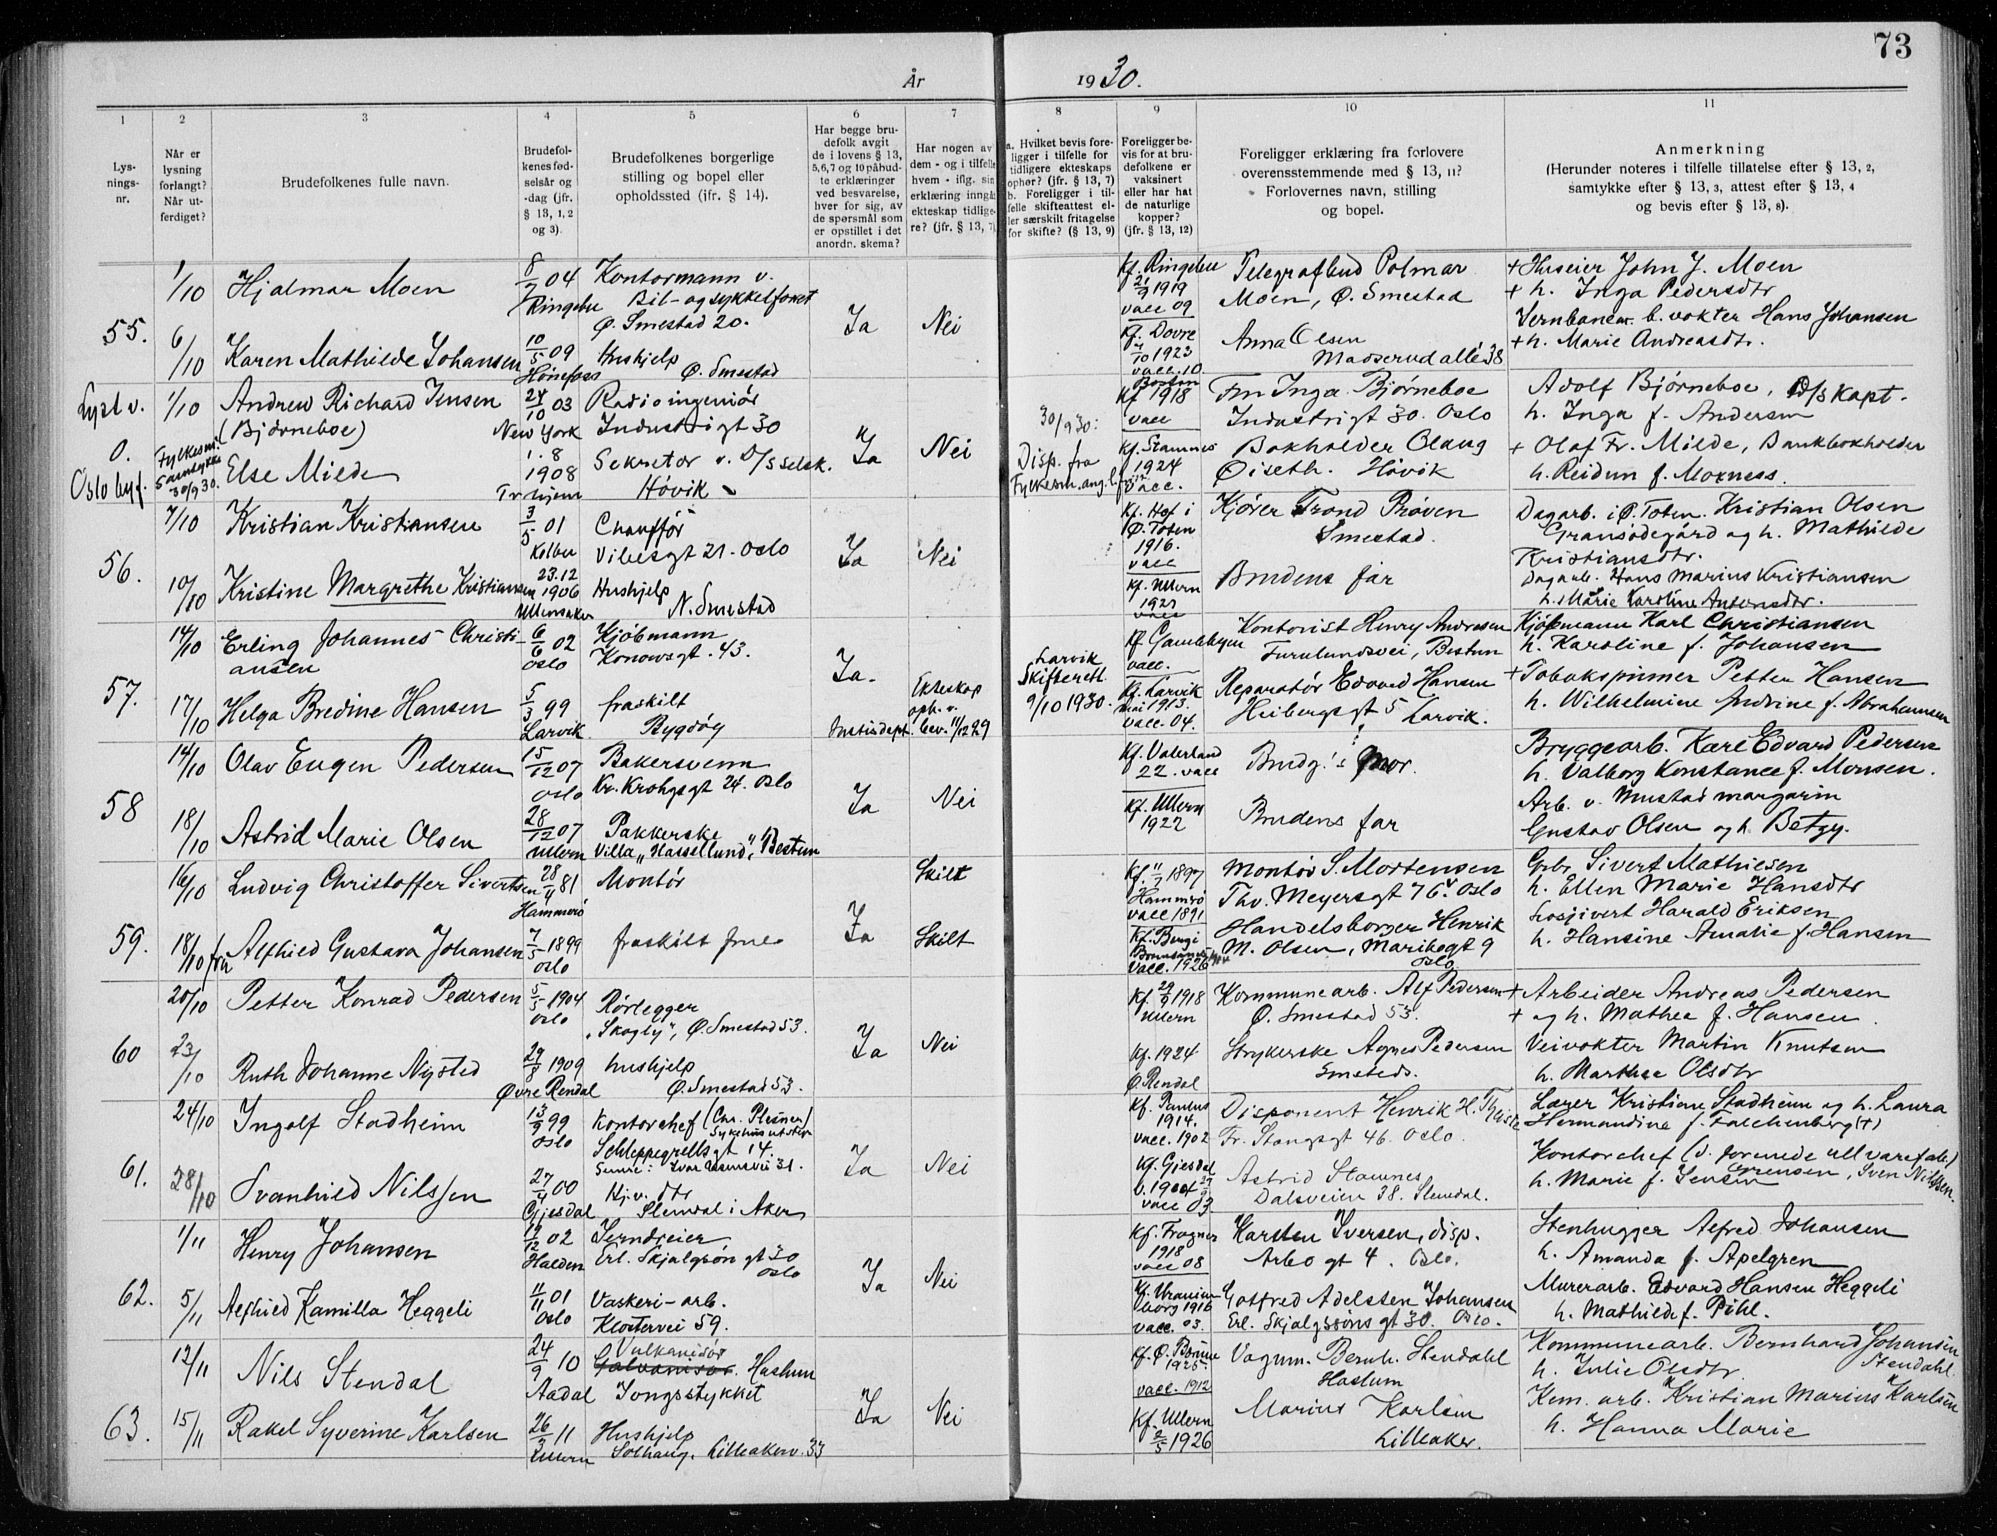 73
År 1930.
1 2 3 4 5 6 7 8 9 10 11
Lys-
nings-
nr.
Når er
lysning
forlangt?
Når ut-
ferdiget?
Brudefolkenes fulle navn.
Brudefol-
kenes fød-
selsår og
-dag (jfr.
§ 13, 1, 2
og 3).
Brudefolkenes borgerlige
stilling og bopel eller
opholdssted (jfr. § 14).
Har begge bru-
defolk avgit
de i lovens § 13,
5,6,7 og 10 påbud-
te erklæringer
ved besvarelse,
hver for sig, av
de spørsmål som
er opstillet i det
anordn. skema?
Har nogen av
dem - og i tilfelle
hvem - iflg. sin
erklæring inngåt
ekteskap tidlige-
re? (jfr. § 13, 7)
a. Hvilket bevis fore-
ligger i tilfelle for
tidligere ekteskaps
ophør? (jfr. § 13, 7)
b. Foreligger i til-
felle skifteattest el-
ler særskilt fritagelse
for skifte? (§ 13, 9)
Foreligger be-
vis for at bru-
defolkene er
vaksinert
eller har hat
de naturlige
kopper?
(jfr. § 13, 12)
Foreligger erklæring fra forlovere
overensstemmende med § 13, 11?
Forlovernes navn, stilling
og bopel.
Anmerkning
(Herunder noteres i tilfelle tillatelse efter § 13, 2,
samtykke efter § 13, 3, attest efter § 13, 4
og bevis efter § 13, 8).
55.
1/10 Hjalmar Moen
8/7 04 Ringebu
Kontormann v.
Bil- og sykkelforret
Ø. Smestad 20.
Ja Nei
Kf. Ringebu
21/9 1919
vacc 09
Telegrafbud Polmar
Moen, Ø. Smestad
+ Huseier John J. Moen
+ h. Inga Pedersdtr
6/10 Karen Mathilde Johansen
10/5 09 Hønefoss
Hushjelp
Ø. Smestad
Kf. Dovre
7/10 1923
vacc. 10.
Anna Olsen
Madserud allé 38
Jernbanear. b. vokter Hans Johansen
+ h. Marie Andreasdtr.
Lyst v.
O.
Oslo byf.
1/10 Andrew Richard Jensen
(Bjørneboe)
24/10 03
New York
Radioingeniør
Industrigt 30
Ja Nei
30/9 30:
Disp. fra
Fylkesm. ang.
Kf 1918
vacc
Fru Inga Bjørneboe
Industrigt 30. Oslo
Adolf Bjørneboe, D/s Kapt.
h. Inga f. Andersen
Fylkesm.
Samtykke
30/9 30.
Else Milde
1.8
1908
Tr.hjem
Sekretær v. D/S selsk.
Høvik
Kf. Stamnes
1924
vacc.
Bokholder Olaug
Øiseth. Høvik
+ Olaf Fr. Milde, Bankbokholder
h. Reidun f. Moxness.
56.
7/10 Kristian Kristiansen
3/5 01
Kolbu
Chauffør
Vibesgt 21. Oslo
Ja Nei
Kf. Hof i
Ø. Toten
1916.
vacc
Kjører Trond Prøven
Smestad.
Dagarb. i Ø. Toten. Kristian Olsen
Gransødegård og h. Mathilde
Kristiansdtr.
10/10 Kristine Margrethe Kristiansen
23.12
1906
Ullensaker
Hushjelp
N. Smestad
Kf. Ullern
1921
vacc
Brudens far
Dagarb. Hans Marius Kristiansen
h. Marie Karoline Antonsdtr.
57.
14/10 Erling Johannes Christi-
ansen
6/6 02
Oslo
Kjøbmann
Konowsgt. 43.
Ja.
Kf. Gamlebyen
vacc.
Kontorist Henry Andresen
Furulundsvei, Bestun
Kjøpmann Karl Christiansen
h. Karoline f. Johansen
17/10 Helga Bredine Hansen
5/3 99
Larvik
fraskilt
Bygdøy
Justisdept.
Ekteskap
oph. v.
bev. 11/12 29
Larvik
Skifterett
9/10 1930.
Kf. Larvik
mai 1913.
vacc. 04.
Reparatør Edvard Hansen
Heibergsgt 5 Larvik.
+ Tobakspinner Petter Hansen
h. Wilhelmine Andrine f. Abrahamsen
58
14/10 Olav Eugen Pedersen
15/12 07
Oslo
Bakersvenn
Kr. Krohgsgt 24. Oslo
Ja Nei
Kf. Vaterland
22. vacc
Brudg.'s Mor.
Bryggearb. Karl Edvard Pedersen
h. Valborg Konstance f. Monsen.
18/10 Astrid Marie Olsen
28/12 07
Ullern
Pakkerske
Villa „Hassellund", Bestun
Kf. Ullern
1922
Brudens far
Arb. v. Mustad margarin
Gustav Olsen og h. Betzy.
59.
16/10 Ludvig Christoffer Sivertsen
28/4 81
Hammerø
Montør
Ja Skilt
Kf. 11/7 1897
Hammerø
vacc 1891
Montør S. Mortensen
Thv. Meyersgt 76 Oslo
Gbr. Sivert Mathiesen
h. Ellen Marie Hansdtr
18/10 fru Alfhild Gustava Johansen
7/5 1899
Oslo
fraskilt frue
Skilt
Vacc. 1926
Handelsborger Henrik
M. Olsen, Maribogt 9
Oslo
Losjivert Harald Eriksen
h. Hansine Amalie f. Hansen
60
20/10 Petter Konrad Pedersen
5/5 1904
Oslo
Rørlegger
„Skogly", Ø. Smestad 53.
Ja Nei
Kf. 29/9 1918
Ullern
Kommunearb. Alf Pedersen
Ø. Smestad 53.
+ Arbeider Andreas Pedersen
+ og h. Mathea f. Hansen.
23/10 Ruth Johanne Nysted
29/8 1909
Øvre Rendal
hushjelp
Ø. Smestad 53.
Kf. 1924
Ø. Rendal
Strykerske Agnes Pedersen
Smestad.
Veivokter Martin Knutsen
h. Marthea Olsdtr
61.
24/10 Ingolf Stadheim
13/9 99
Oslo
Kontorchef (Chr. Plesner)
Sykehusutstyr
Schleppegrellsgt 14.
Ja Nei
Kf. Paulus
1914.
vacc. 1902
Disponent Henrik H. Thysle
Fr. Stangsgt 46. Oslo.
Laxer Kristian Stadheim og h. Laura
Hermandine f. Falchenberg (+)
28/10 Svanhild Nilssen
27/4 00
Gjesdal
Ivar Aasensvei 31.
Hj.v. dtr
Slemdal i Aker
Kf. Gjesdal
vacc 03
Astrid Stamnes
Dalsveien 38. Slemdal.
Kontorchef (d. forenede ullvarefabr.)
h. Marie f. Jensen Sørensen, Sven Nilssen.
62.
1/11 Henry Johansen
12/12 02
Halden
Jerndreier
Erl. Skjalgsøn gt 30
Oslo
Ja Nei
Kf. Frogner
1918
vacc 08
Karsten Iversen, disp.
Arbo gt 4. Oslo.
Stenhugger Alfred Johansen
h. Amanda f. Apelgren
5/11 Alfhild Kamilla Heggeli
1/11 01
Oslo
Vaskeri-arb.
Klostervei 59.
Kf. Uranien
borg 1916
vacc. 03.
Gotfred Adelsten Johansen
Erl. Skjalgssøns gt 30. Oslo.
Murerarb. Edvard Hansen Heggeli
h. Mathilde f. Pihl.
63.
12/11 Nils Stendal
24/9 10
Aadal
Vulkanisør
Galvanisør. Haslum
Jongsstykket
Ja Nei
Kf. Ø. Bærum
1925.
vacc. 1912
Vognm. Bernh. Stendahl
Haslum
Kommunearb. Bernhard Johansen
Stendahl
h. Julie Olsdtr.
15/11 Rakel Syverine Karlsen
26/3 11
Ullern
Hushjelp
Solhaug. Lilleakerv. 33
Kf. Ullern
2/5 1926
Marius Karlsen
Lilleaker.
Kom. arb. Kristian Marius Karlsen
h. Hanna Marie